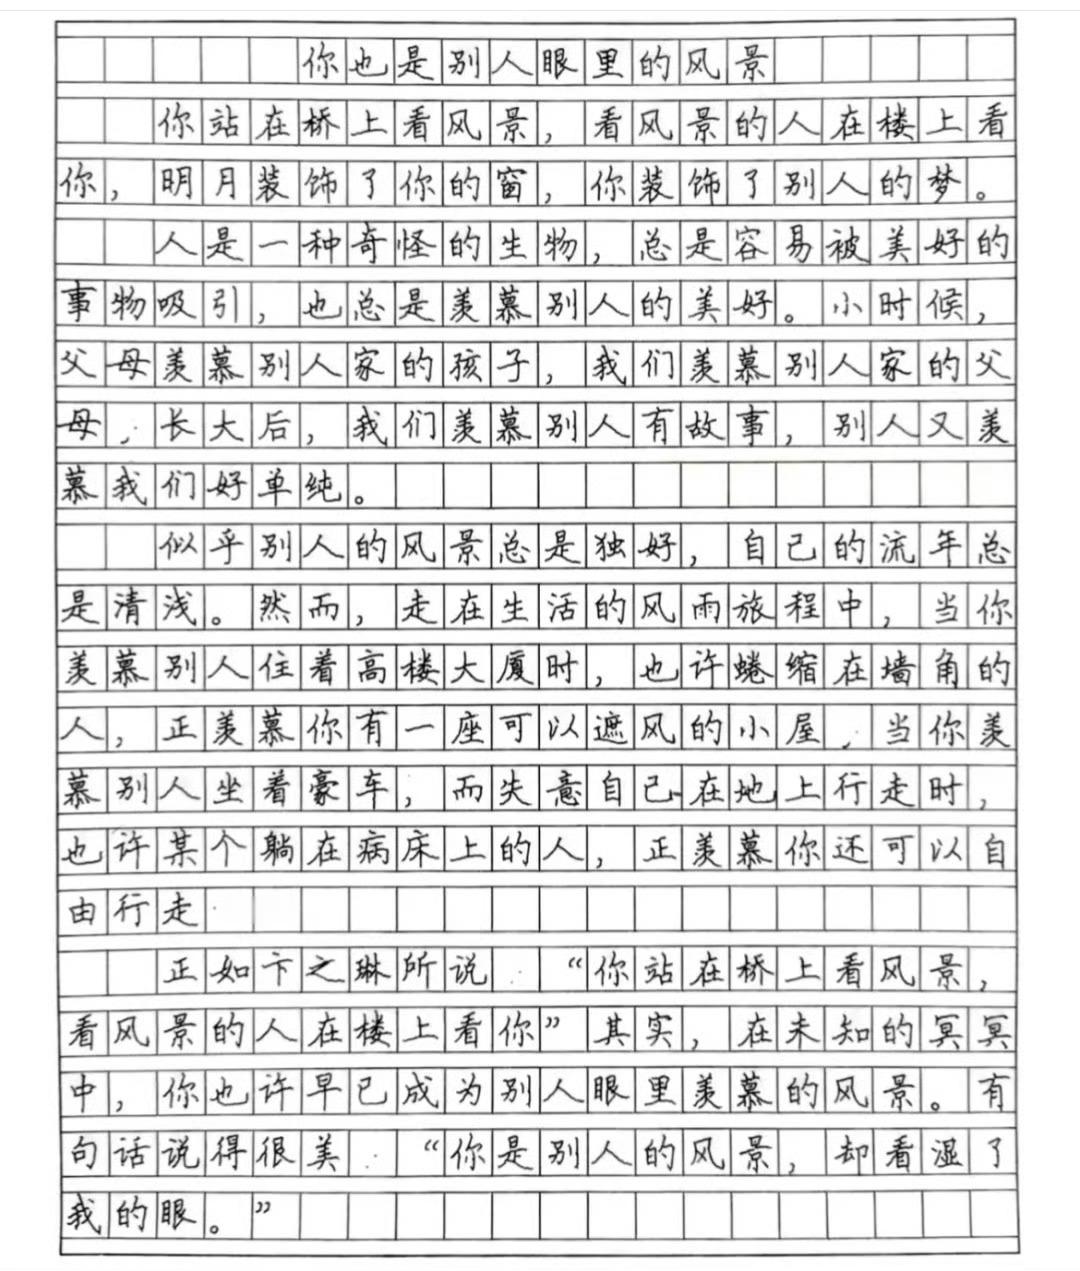 你也是别人眼里的风景
你站在桥上看风景，看风景的人在楼上看
你，明月装饰了你的窗，你装饰了别人的梦。
人是一种奇怪的生物，总是容易被美好的
事物吸引，也总是羡慕别人的美好。小时候，
父母羡慕别人家的孩子，我们羡慕别人家的父
母；长大后，我们羡慕别人有故事，别人又羡
慕我们好单纯。
似乎别人的风景总是独好，自己的流年总
是清浅。然而，走在生活的风雨旅程中，当你
羡慕别人住着高楼大厦时，也许蜷缩在墙角的
人，正羡慕你有一座可以遮风的小屋；当你羡
慕别人坐着豪车，而失意自己在地上行走时，
也许某个躺在病床上的人，正羡慕你还可以自
由行走
正如卞之琳所说：“你站在桥上看风景，
看风景的人在楼上看你”其实，在未知的冥冥
中，你也许早已成为别人眼里羡慕的风景。有
句话说得很美：“你是别人的风景，却看湿了
我的眼。”